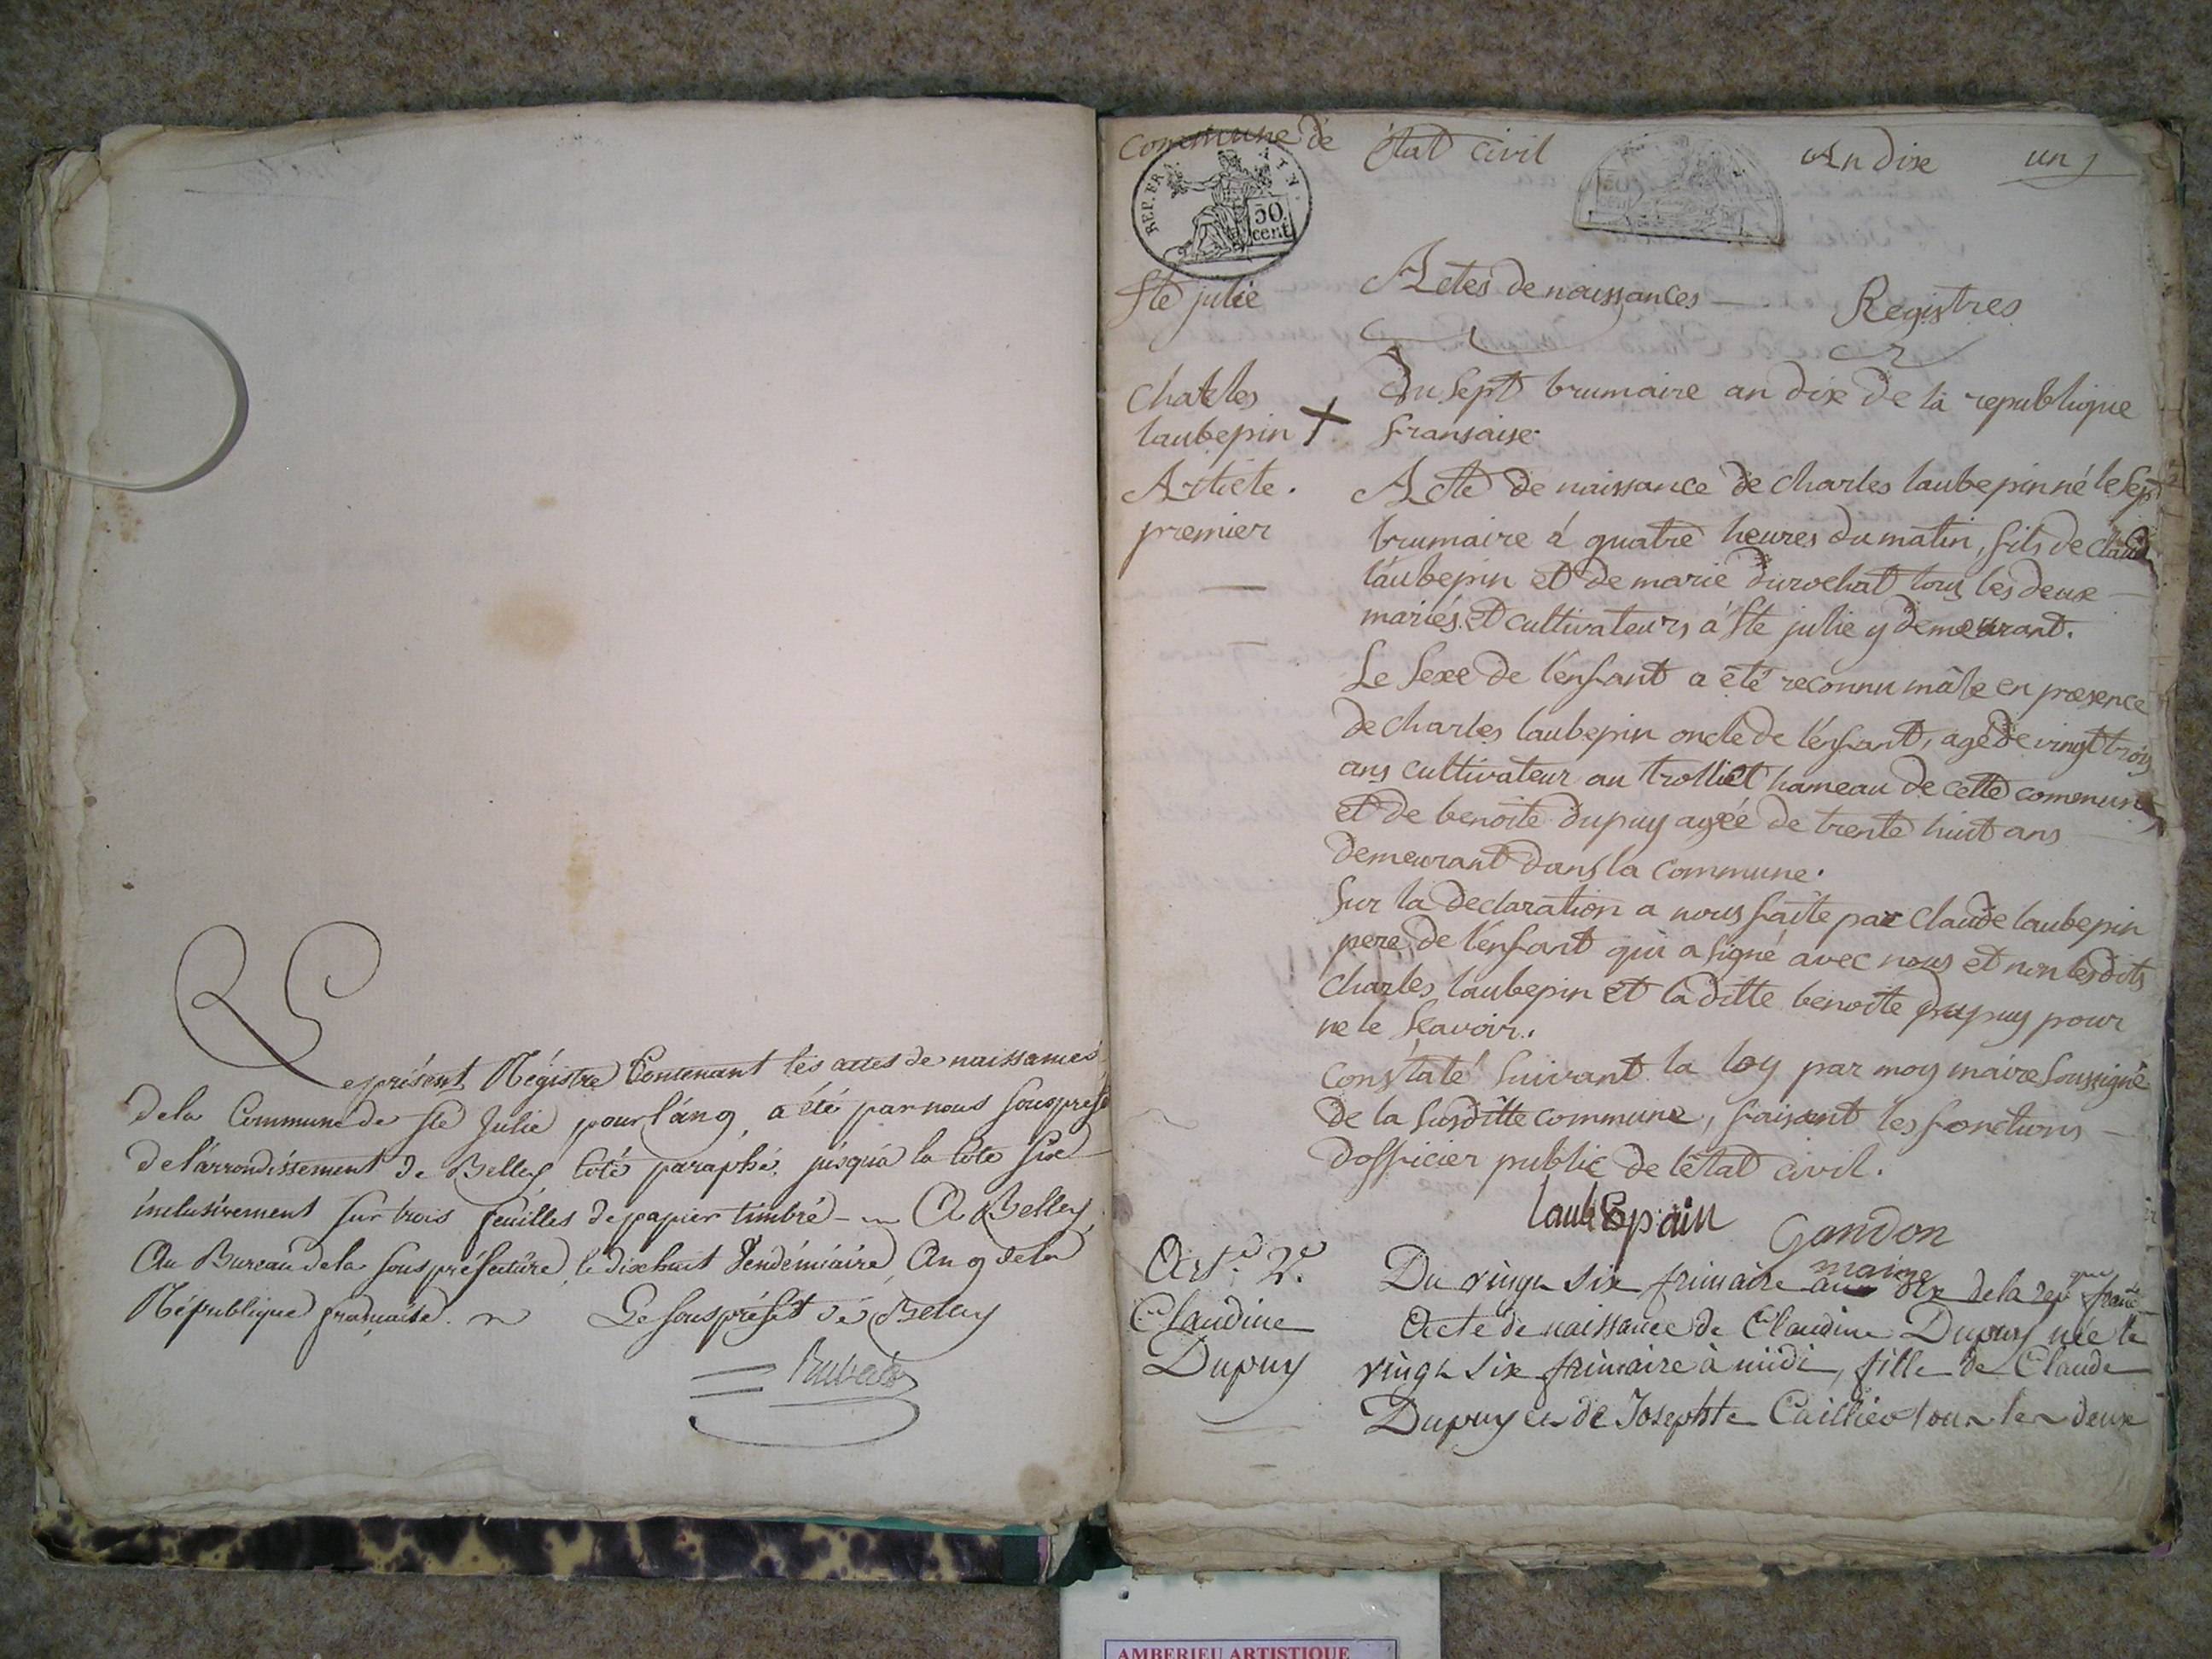 Le présent Régistre Contenant les actes de naissances
dela Commune de Ste Julie pour l'an 9, a été par nous sousprefet
del'arrondissement de Belley coté paraphé, jusqu'a la cote six
inclusivement sur trois feuilles depapier timbré - A Belley,
Au Bureau dela souspréfecture, le dixhuit Vendémiaire, An 9 dela
République française. Le souspréfet de Belley
Commune de état civil An dix un
REP. FRA
50
cent
Ste julie Actes de naissances — Registres
Charles
laubepin +
Article.
premier
Du sept brumaire an dix de la republique
fransaise.
Acte de naissance de charles laubepin né le sept
brumaire à quatre heures du matin, fils de claude
laubepin et de marie durochat tous les deux —
mariés et cultivateurs à Ste julie y demeurant.
Le sexe de l'enfant a été reconnu mâle en presence
de charles laubepin oncle de l'enfant, agé de vingt trois
ans cultivateur au trolliet hameau de cette commune
et de benoite dupuy agée de trente huit ans
demeurant dans la commune.
Sur la declaration a nous faite par claude laubepin
pere de l'enfant qui a signé avec nous et non lesdits
charles laubepin et la ditte benoite dupuy pour
ne le scavoir.
Constaté suivant la loy par moy maire soussigné
de la susditte commune, faisant les fonctions —
d'officier public de l'état civil.
laubEpain Gandon
maire
Art. 2.e
Claudine
Dupuy
Du vingt six frimaire an dix de la rep que franc
Acte de naissance de Claudine Dupuy née le
vingt six frimaire à midi, fille de Claude
Dupuy et de Josephte Caillier tous les deux
AMBERIEU ARTISTIQUE